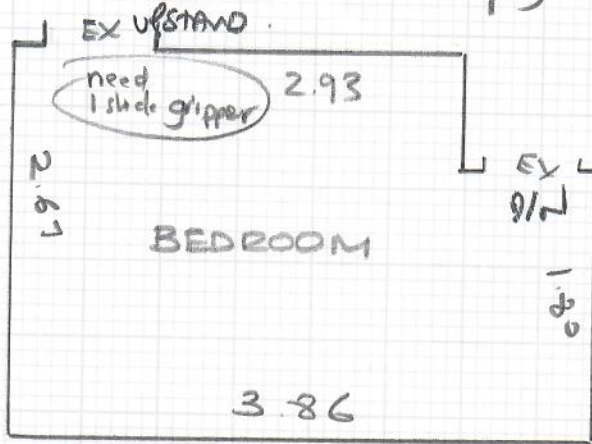 EX UPSTAND.
need
1 side gripper
2.93
2.67
EX
D/N
BEDROOM
1.80
3.86